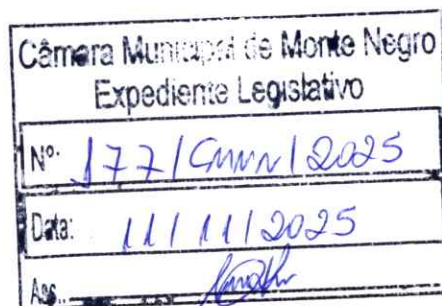 Câmara Municipal de Monte Negro
Expediente Legislativo
Nº. 177/CMMN/2025
Data: 11/11/2025
Ass.